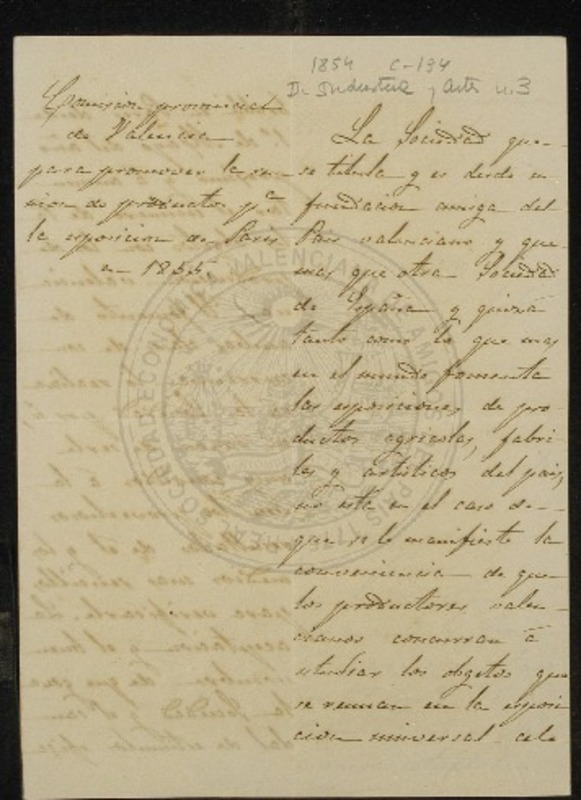 1854 C-134
D. Industria y artes n. 3
Comision provincial
de Valencia
para promover la reu-
nion de productos pª
la esposicion de Paris
en 1855.
La Sociedad que
se titula y es desde su
fundacion amiga del
Pais valenciano y que
mas que otra Sociedad
de España y quizá
tanto como la que mas
en el mundo fomenta
las esposiciones de pro-
ductos agricolas, fabri-
les y artisticos del pais,
no está en el caso de
que se le manifieste la
conveniencia de que
los productores valen-
cianos concurran á
estudiar los objetos que
se reunan en la esposi-
cion universal de
REAL SOCIEDAD ECONOMICA VALENCIANA DE AMIGOS DEL PAIS 1776